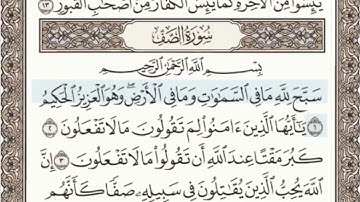 يَئِسُوا۟ مِنَ ٱلْـَٔاخِرَةِ كَمَا يَئِسَ ٱلْكُفَّارُ مِنْ أَصْحَـٰبِ ٱلْقُبُورِ ١٣
سُورَةُ ٱلصَّفِّ
بِسْمِ ٱللَّهِ ٱلرَّحْمَـٰنِ ٱلرَّحِيمِ
سَبَّحَ لِلَّهِ مَا فِى ٱلسَّمَـٰوَٰتِ وَمَا فِى ٱلْأَرْضِ ۖ وَهُوَ ٱلْعَزِيزُ ٱلْحَكِيمُ
١ يَـٰٓأَيُّهَا ٱلَّذِينَ ءَامَنُوا۟ لِمَ تَقُولُونَ مَا لَا تَفْعَلُونَ ٢
كَبُرَ مَقْتًا عِندَ ٱللَّهِ أَن تَقُولُوا۟ مَا لَا تَفْعَلُونَ ٣ إِنَّ
ٱللَّهَ يُحِبُّ ٱلَّذِينَ يُقَـٰتِلُونَ فِى سَبِيلِهِۦ صَفًّا كَأَنَّهُم